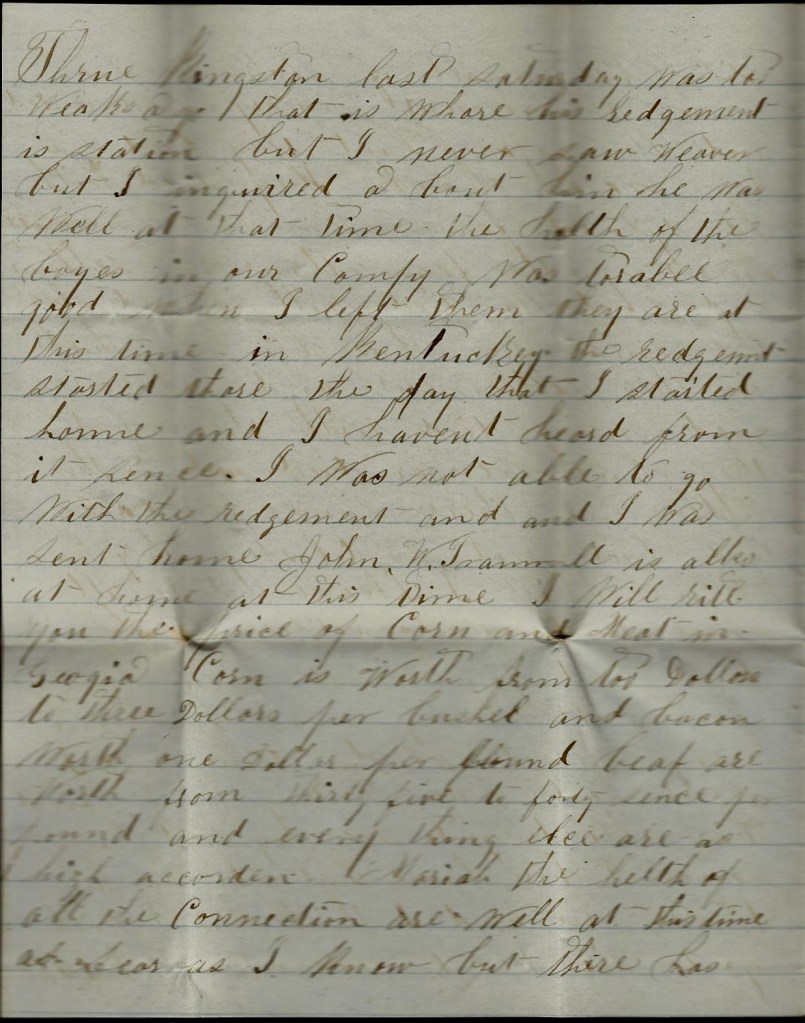 Thrue Kingston last saturday was too
Weaks ago that is whare his redgement
is station but I never saw Weaver
but I inquired a bout him he Was
Well at that time the helth of the
boyes in our Compy Was torabel
good when I left them they are at
this time in Kentuckey the redgemt
started thare the day that I started
home and I havent heard from
it sence. I Was not able to go
With the redgement and and I Was
sent home John. W. Trammell is allso
at home at this time I Will rite
you the price of Corn and Meat in
Georgia Corn is Worth from too Dollars
to three Dollars per bushel and bacon
Worth one Dollar per pound beaf are
Worth from thirty five to forty sence per
pound and every thing elce are as
high accorden Mariah the helth of
all the Connection are Well at this time
as fear as I Know but there has